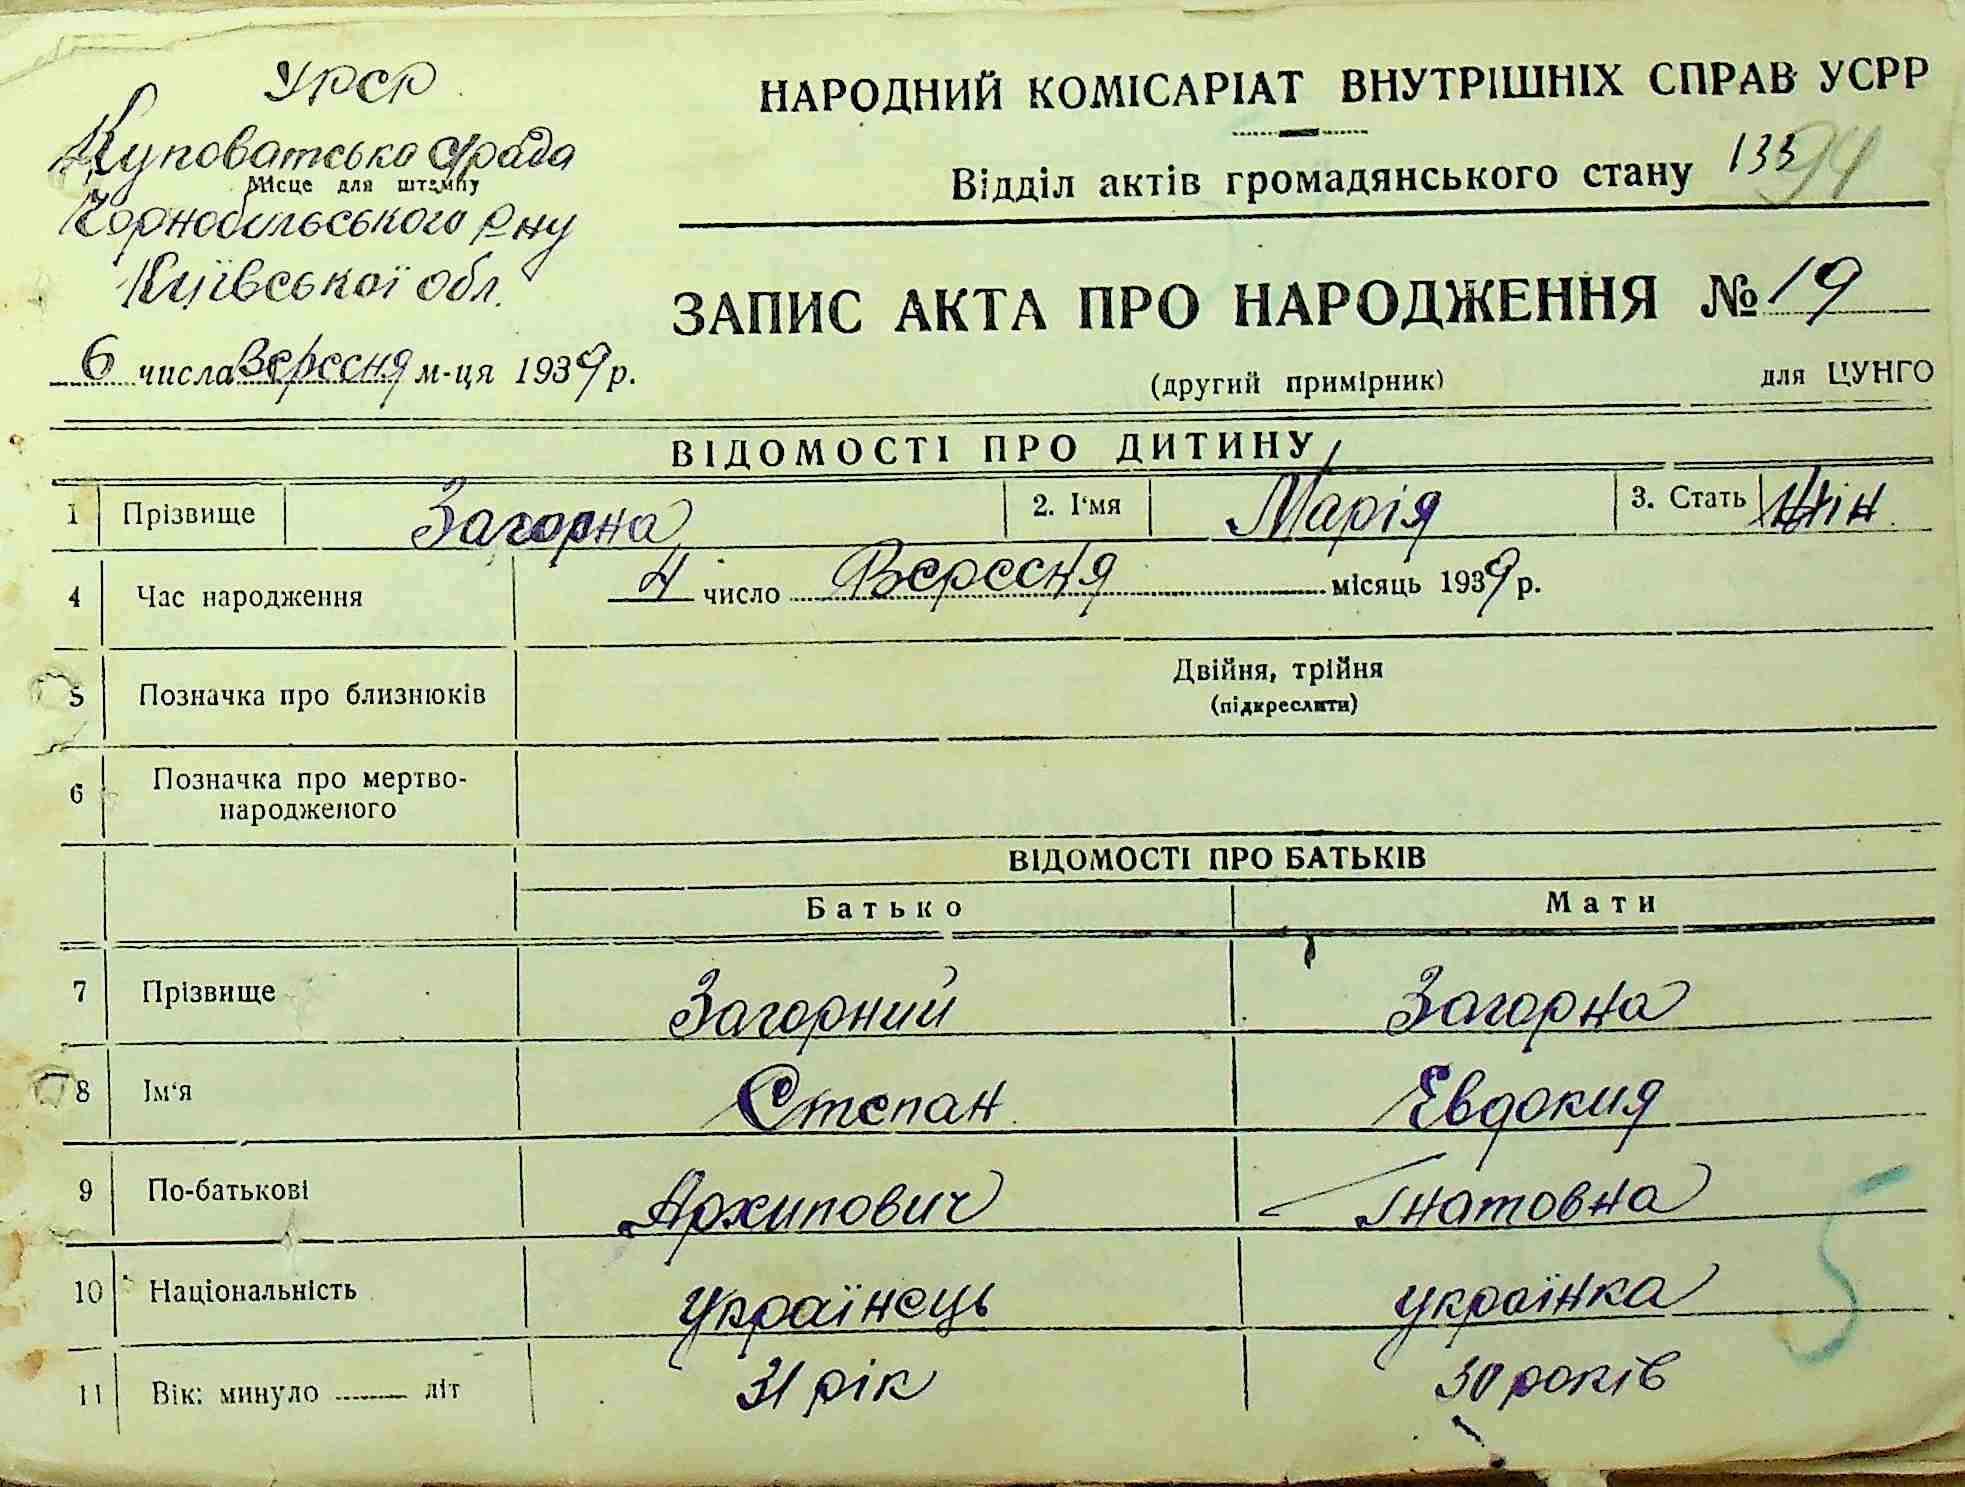 УРСР
Куповатська с/рада
Місце для штампу
Чорнобильського р-ну
Київської обл.
6 числа Вересня м-ця 1939 р.
НАРОДНИЙ КОМІСАРІАТ ВНУТРІШНІХ СПРАВ УСРР
Відділ актів громадянського стану 133 94
ЗАПИС АКТА ПРО НАРОДЖЕННЯ № 19
(другий примірник) для ЦУНГО
ВІДОМОСТІ ПРО ДИТИНУ
1 Прізвище Загорна 2. І'мя Марія 3. Стать Жін.
4 Час народження 4 число Вересня місяць 1939 р.
5 Позначка про близнюків Двійня, трійня
(підкреслити)
6 Позначка про мертво-
народженого
ВІДОМОСТІ ПРО БАТЬКІВ
Батько Мати
7 Прізвище Загорний Загорна
8 Ім'я Степан Евдокия
9 По-батькові Архипович Гнатовна
10 Національність українець українка
11 Вік: минуло літ 31 рік 30 років
5